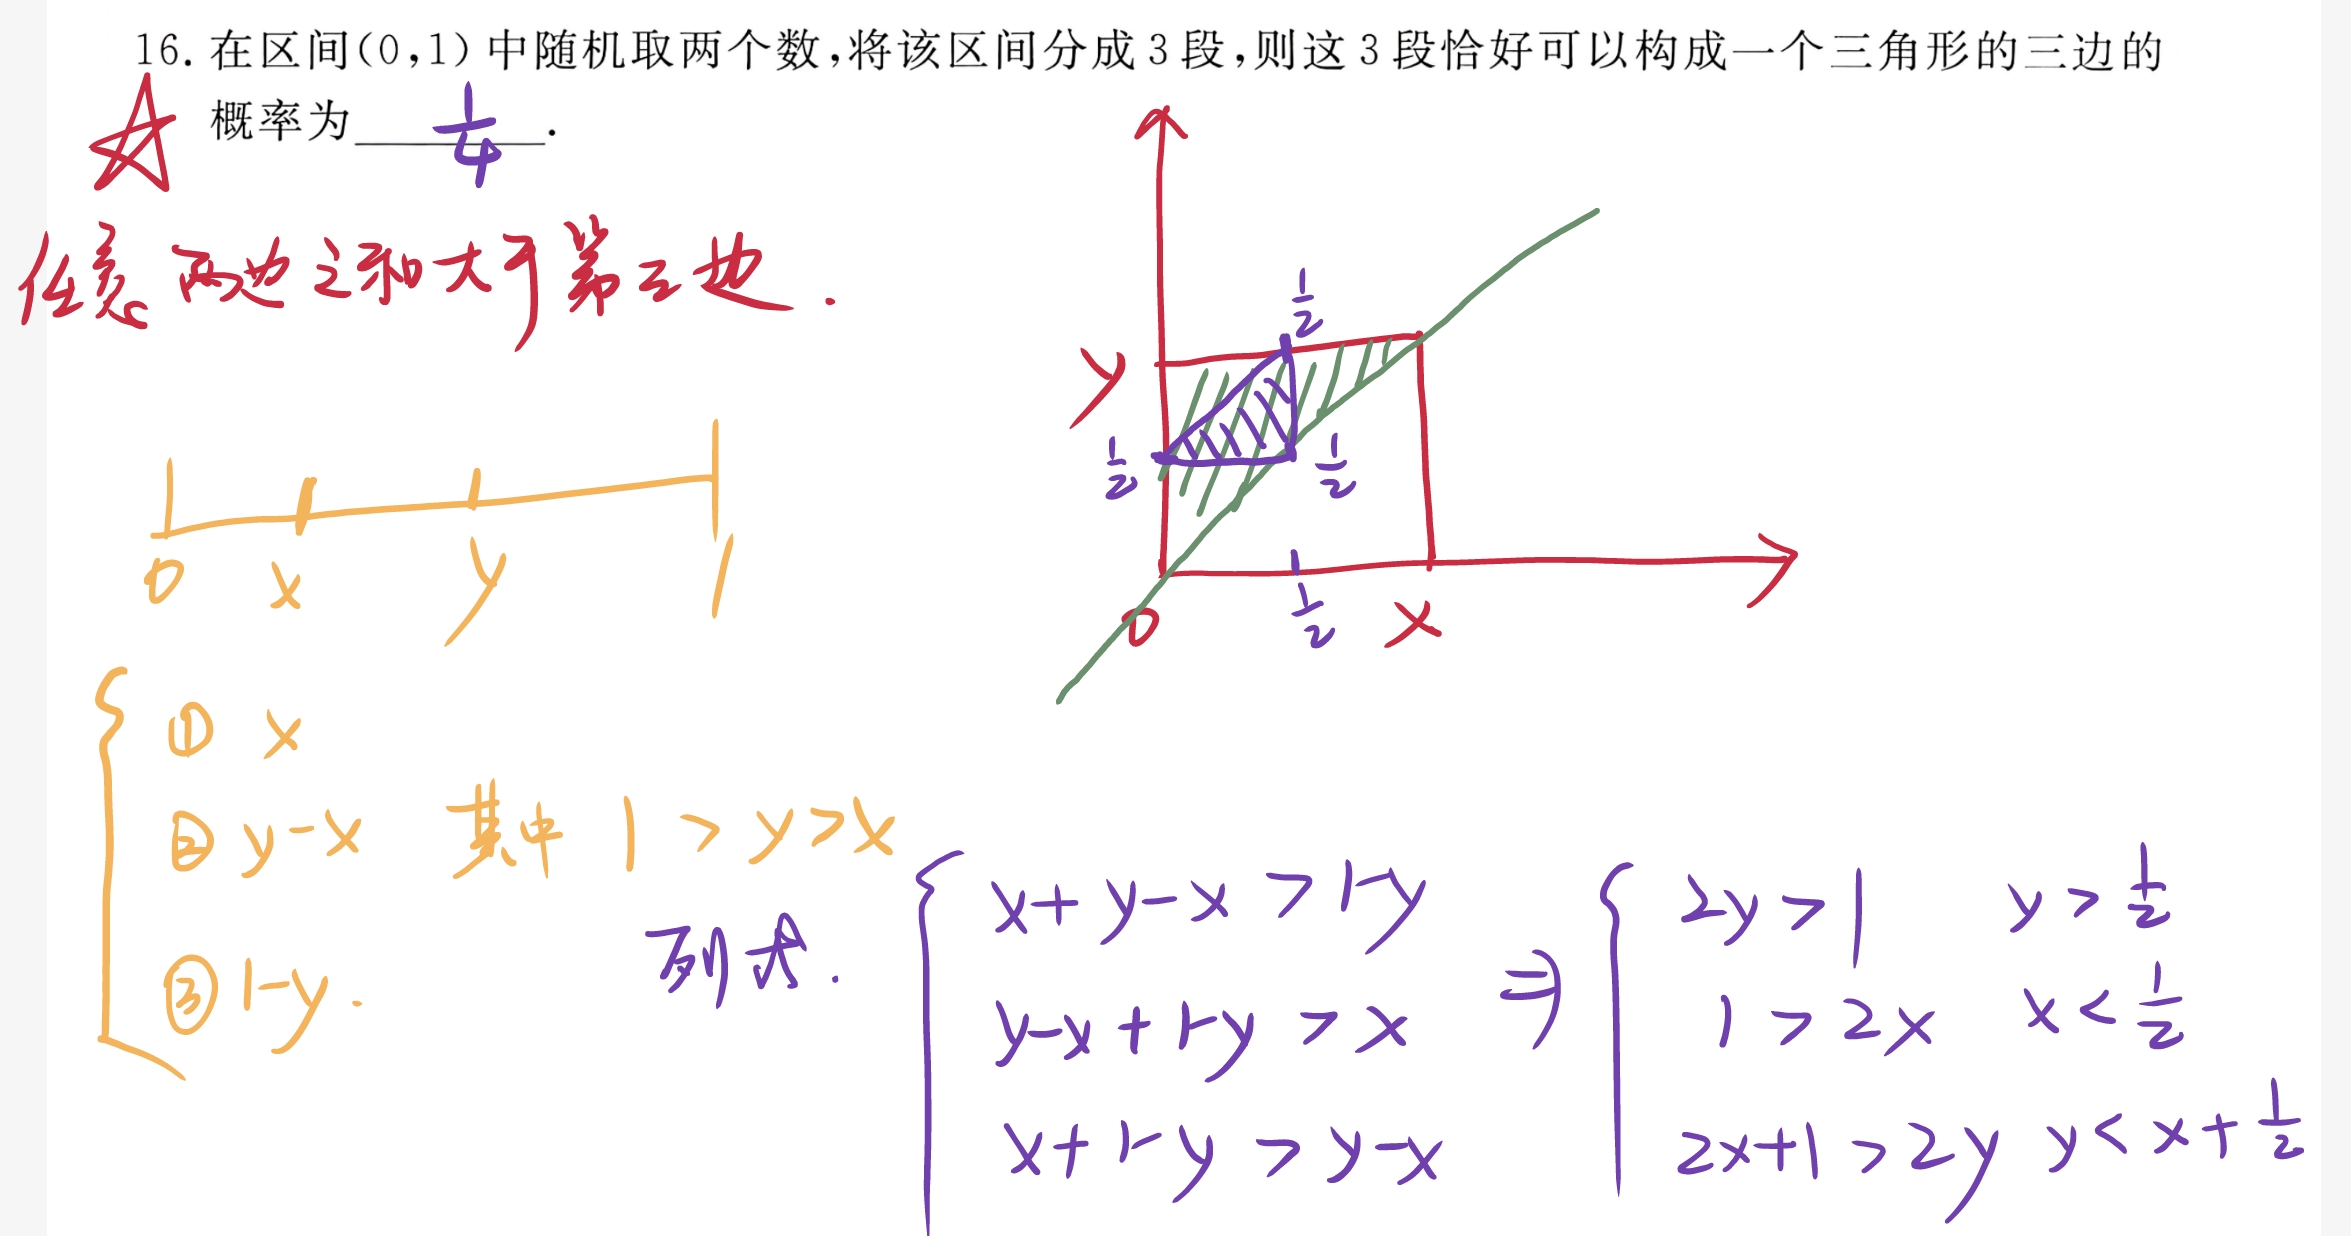 16. 在区间(0,1)中随机取两个数,将该区间分成3段,则这3段恰好可以构成一个三角形的三边的
概率为 1/4 .
任意两边之和大于第三边.
y
1/2
1/2
1/2
0
1/2
x
0 x y 1
① x
② y-x 其中 1>y>x
③ 1-y.
列式.
x+y-x>1-y
y-x+1-y>x
x+1-y>y-x
⇒
2y>1 y>1/2
1>2x x<1/2
2x+1>2y y<x+1/2